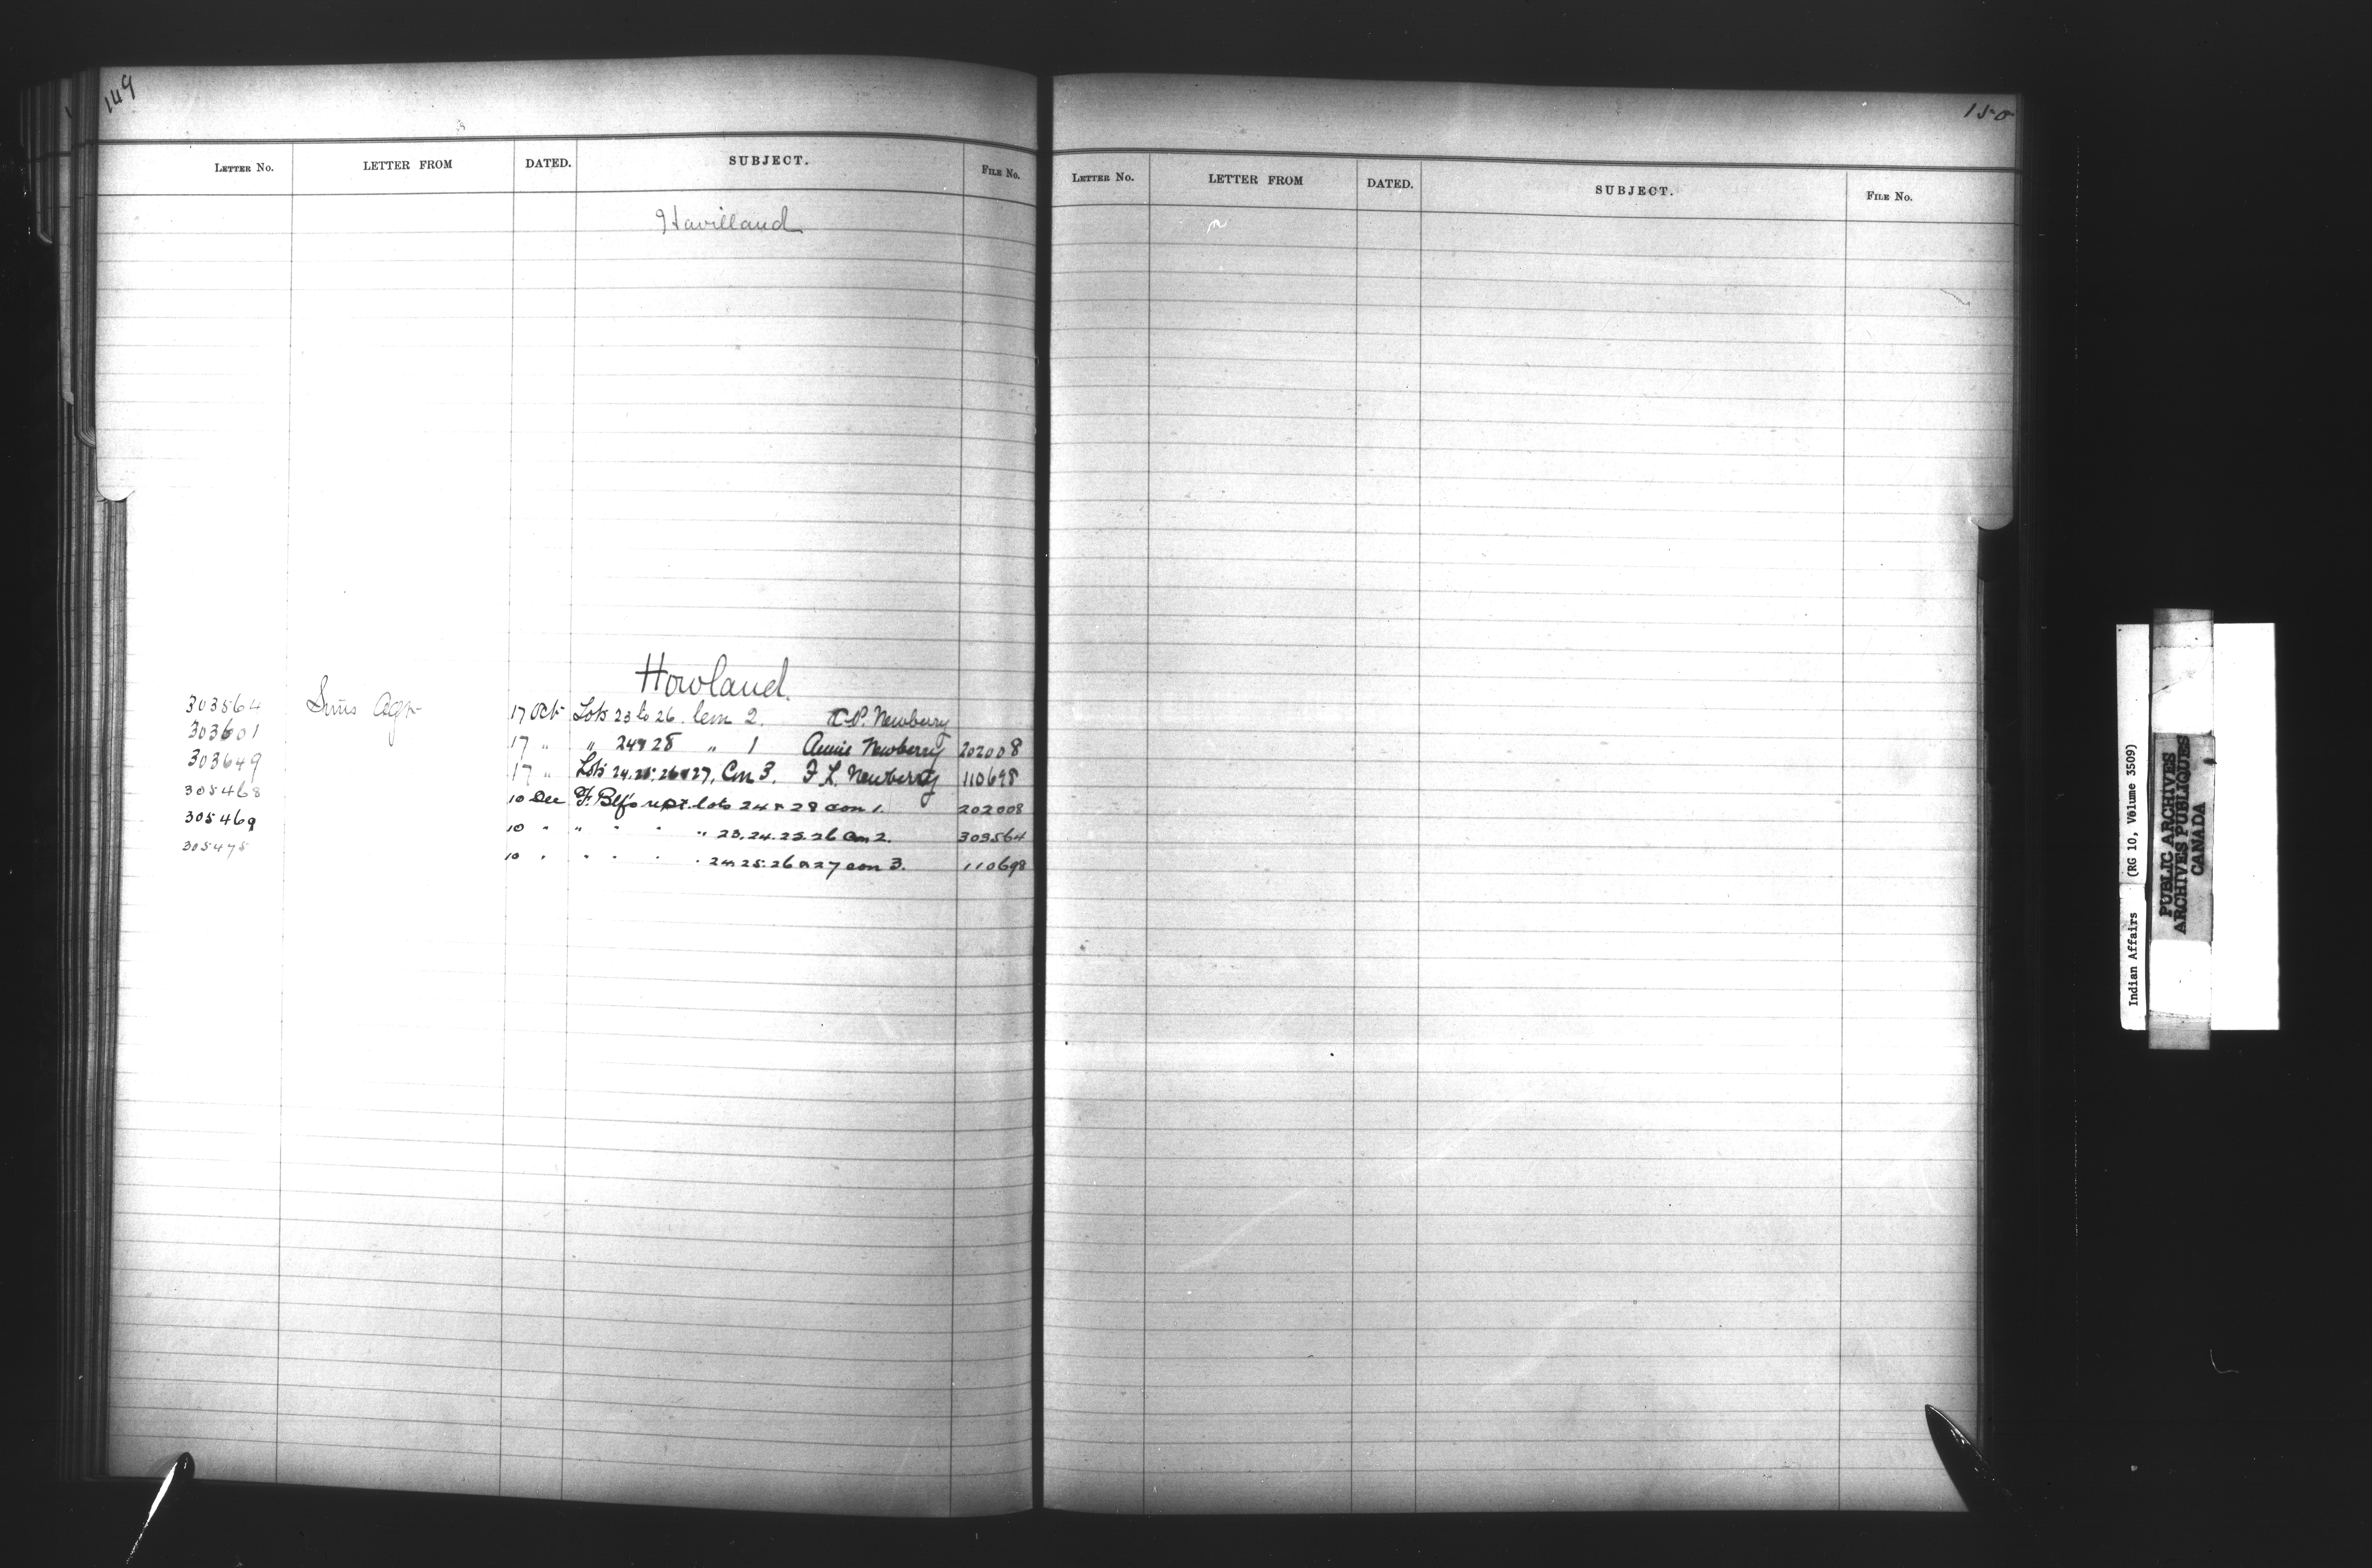 149
LETTER No. LETTER FROM DATED. SUBJECT. FILE No.
Havilland
Howland.
303564 Sims Agt 17 Oct Lots 23 to 26. Con 2. C.P. Newberry
303601 17 " " 24 & 28 " 1 Annie Newberry 202008
303649 17 " Lots 24.25.26 & 27, Con 3. F L. Newberry 110698
305468 10 Dec lots 24 & 28 con 1. 202008
305469 10 " " " " " 23.24.25.26 Con 2. 303564
305475 10 " " " " " 24 25.26 & 27 con 3. 110698
150
LETTER No. LETTER FROM DATED. SUBJECT. FILE No.
Indian Affairs (RG 10, Volume 3509)
PUBLIC ARCHIVES
ARCHIVES PUBLIQUES
CANADA